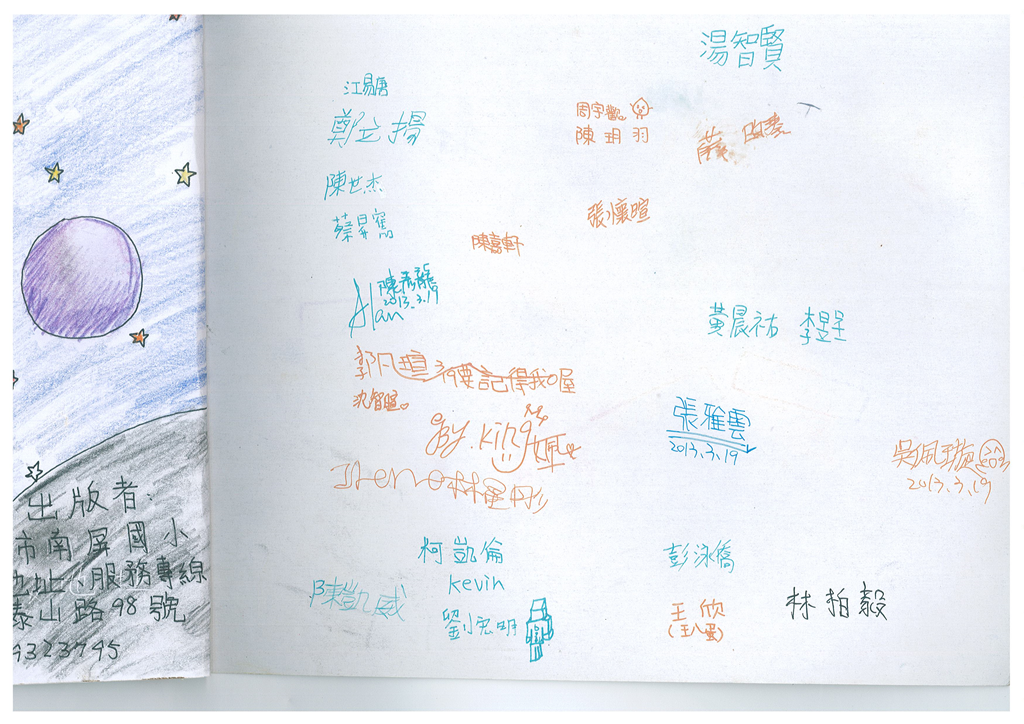 出版者:
市南屏國小
地址、服務專線
泰山路98號
9323795
湯智賢
江易唐
鄭立揚
周宇歡
陳玥羽
陳世杰
張懷暄
陳嘉軒
陳彥龍
2013.3.19
Alan
黃晨祐 李昱呈
郭凡瑄 要記得我喔
沈智暄
By.King
張雅雲
2013.3.19
吳佩璇
2013.3.19
Irene 林星彤
柯凱倫
kevin
彭泳僑
陳凱威
劉宏明
王欣
(王八蛋)
林柏毅